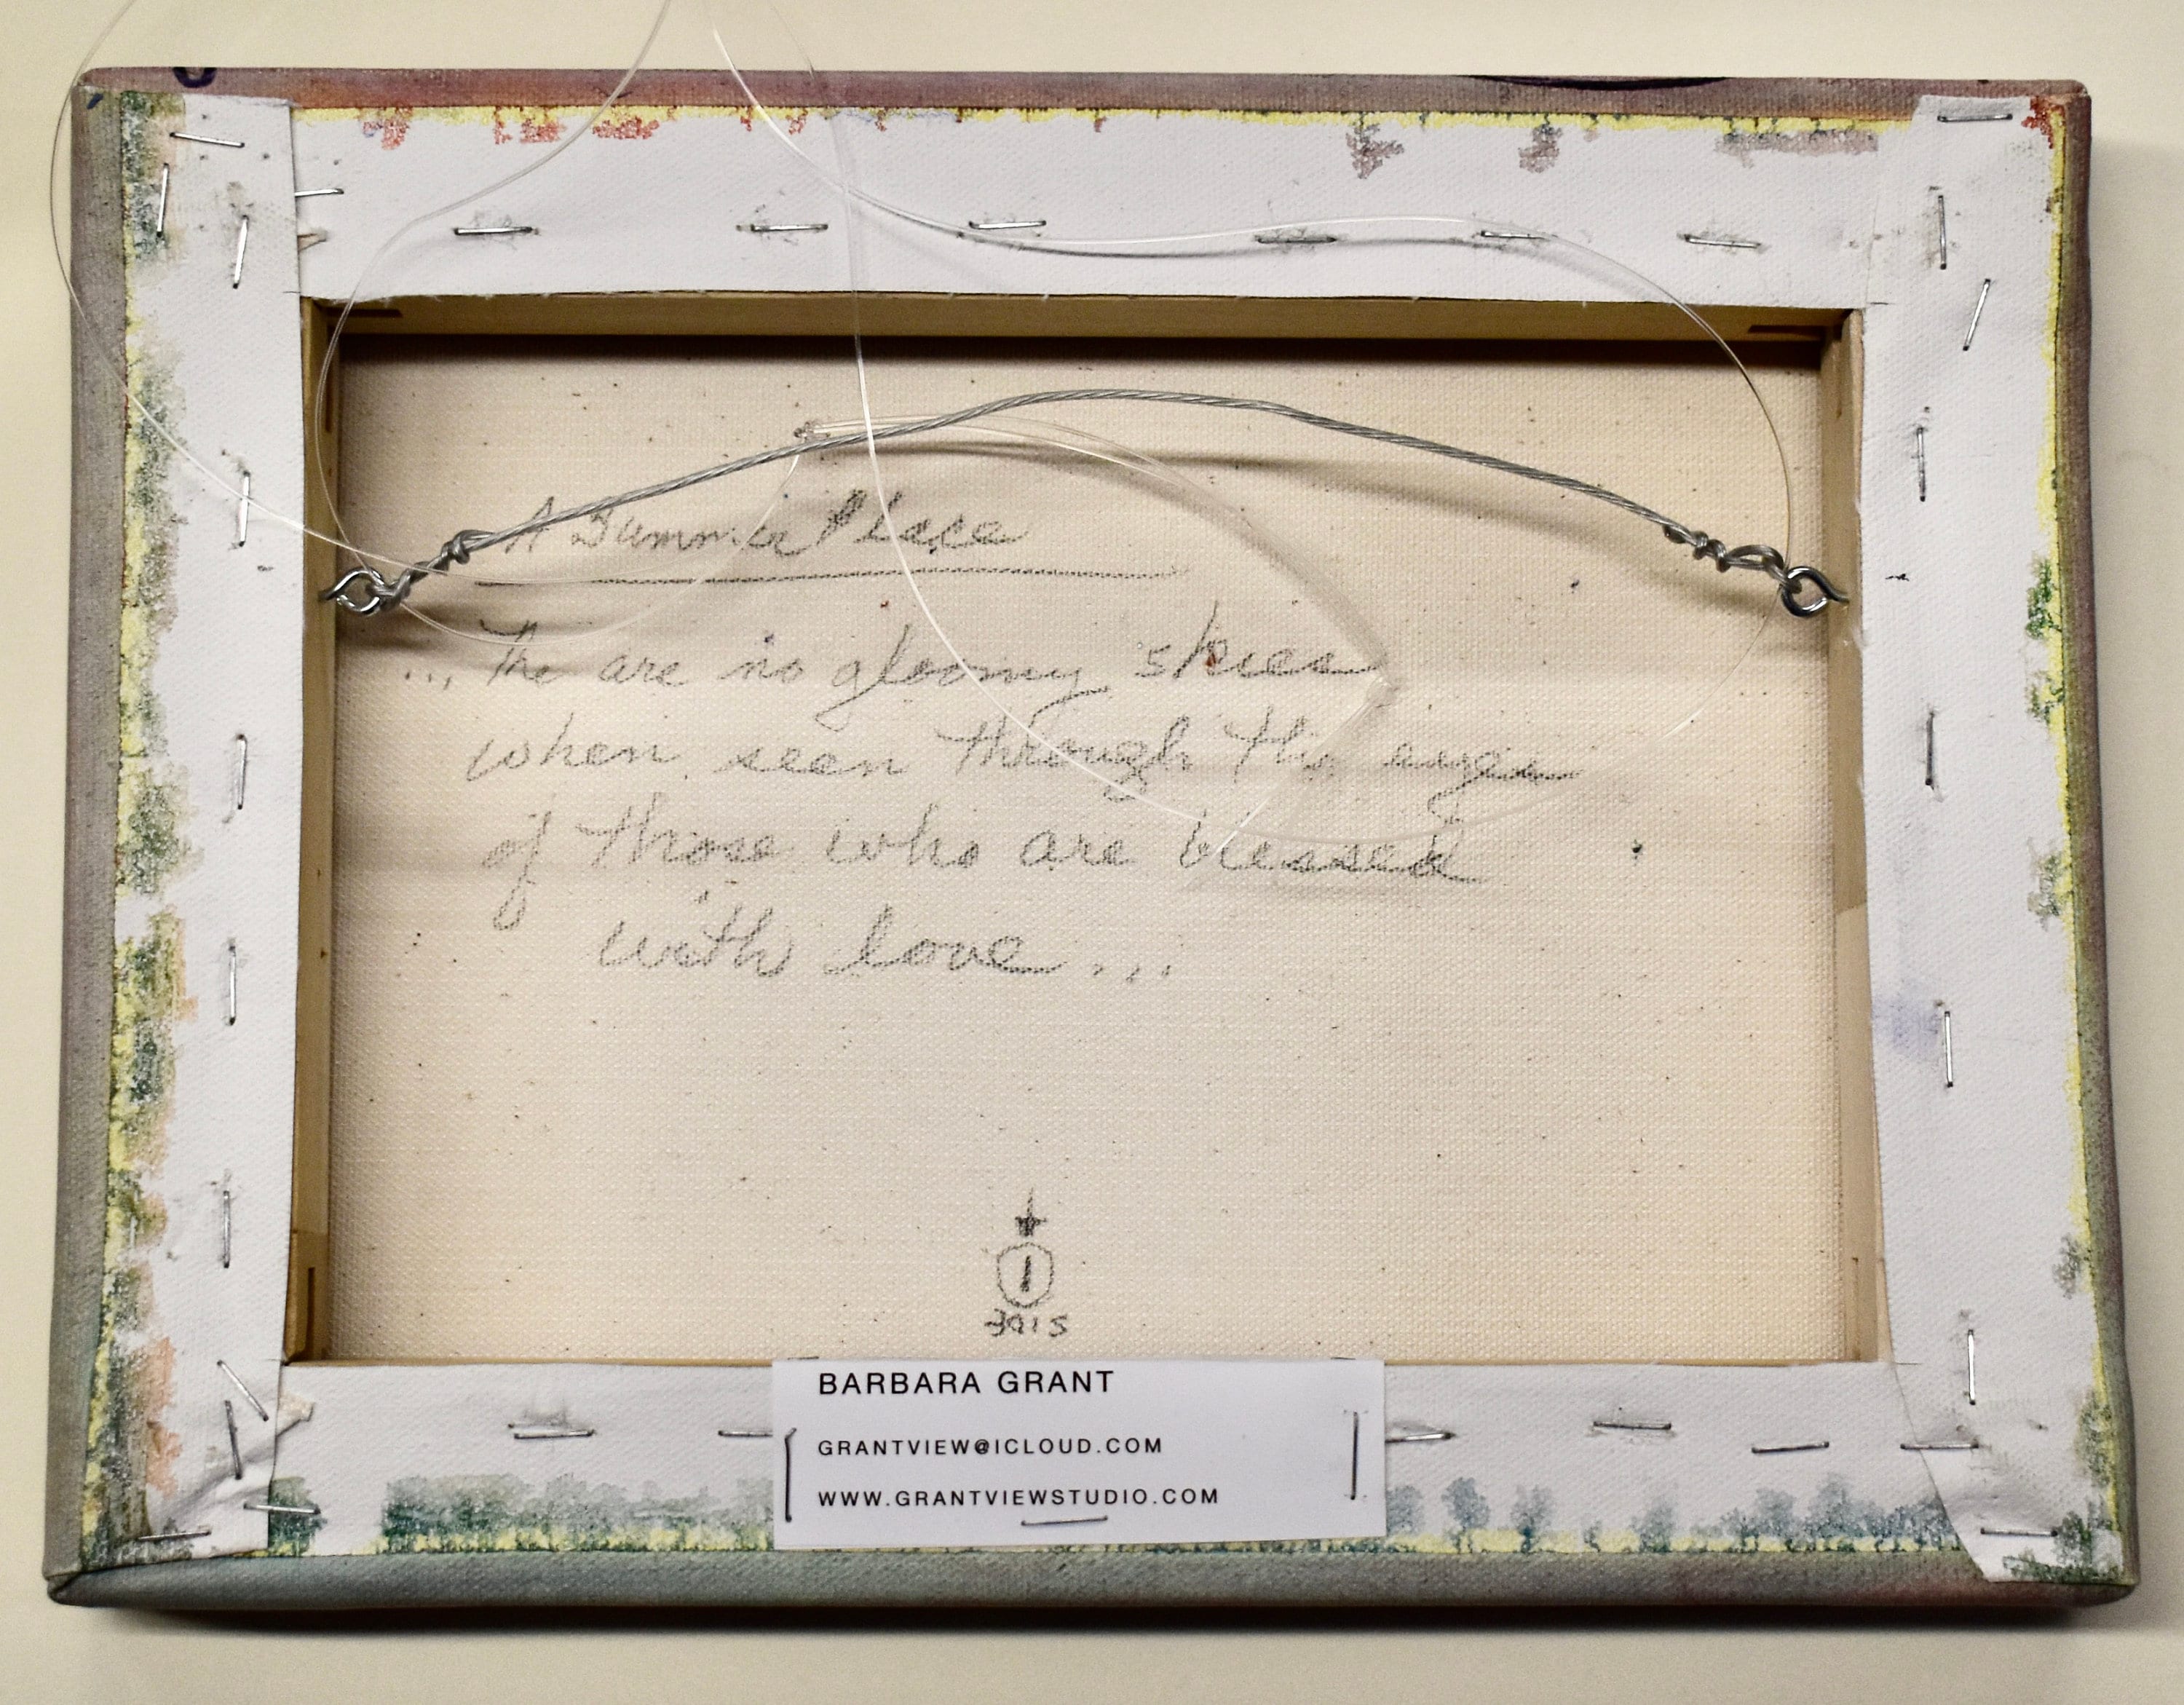 A Summer Place
... The are no gloomy skies
when seen through the eyes
of those who are blessed
with love...
1
BARBARA GRANT
GRANTVIEW@ICLOUD.COM
WWW.GRANTVIEWSTUDIO.COM